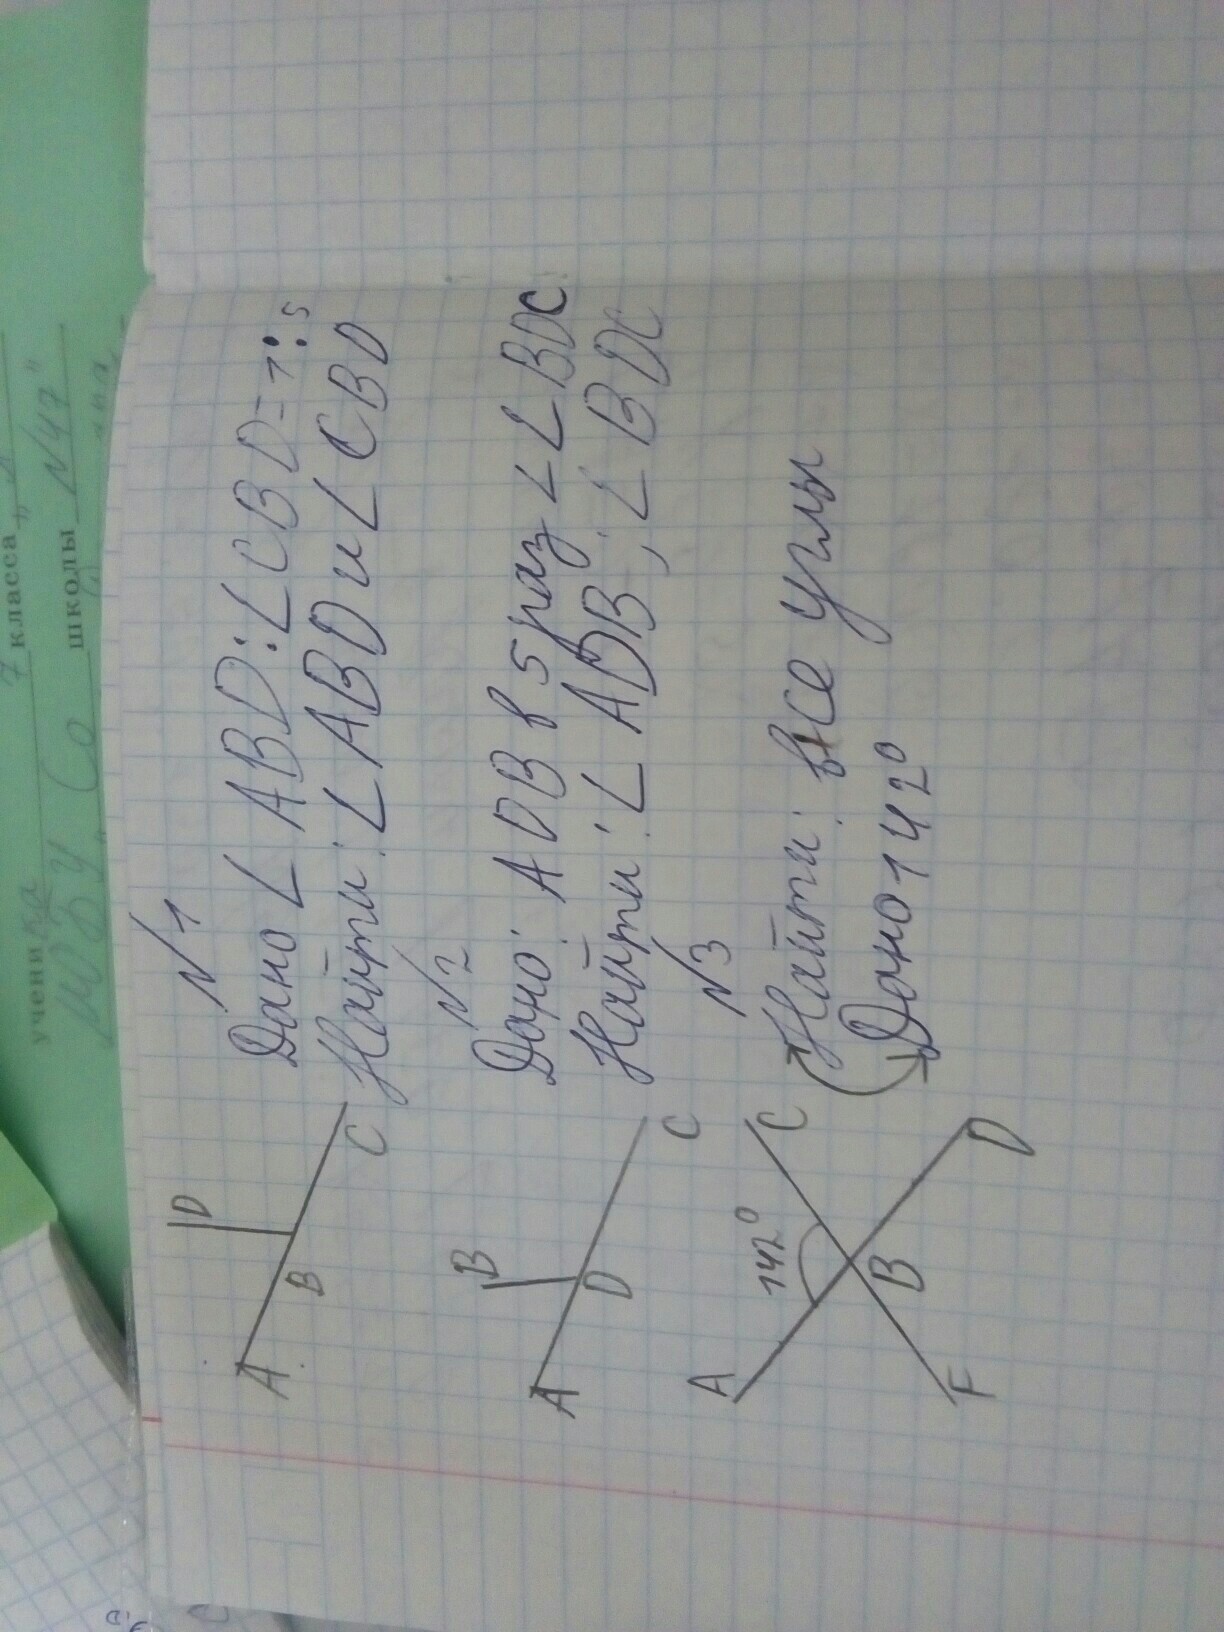 учени ка
7 класса
школы N47"
МБУ "
N1
Дано ∠ ABD:∠CBD=1:5
Найти: ∠ ABD и ∠ CBD
D
A
B
C
N2
Дано: ADB в 5 раз < ∠ BDC
Найти: ∠ ADB; ∠ BDC
B
A
D
C
N3
Найти: все углы
Дано 142°
A
142°
C
B
F
D